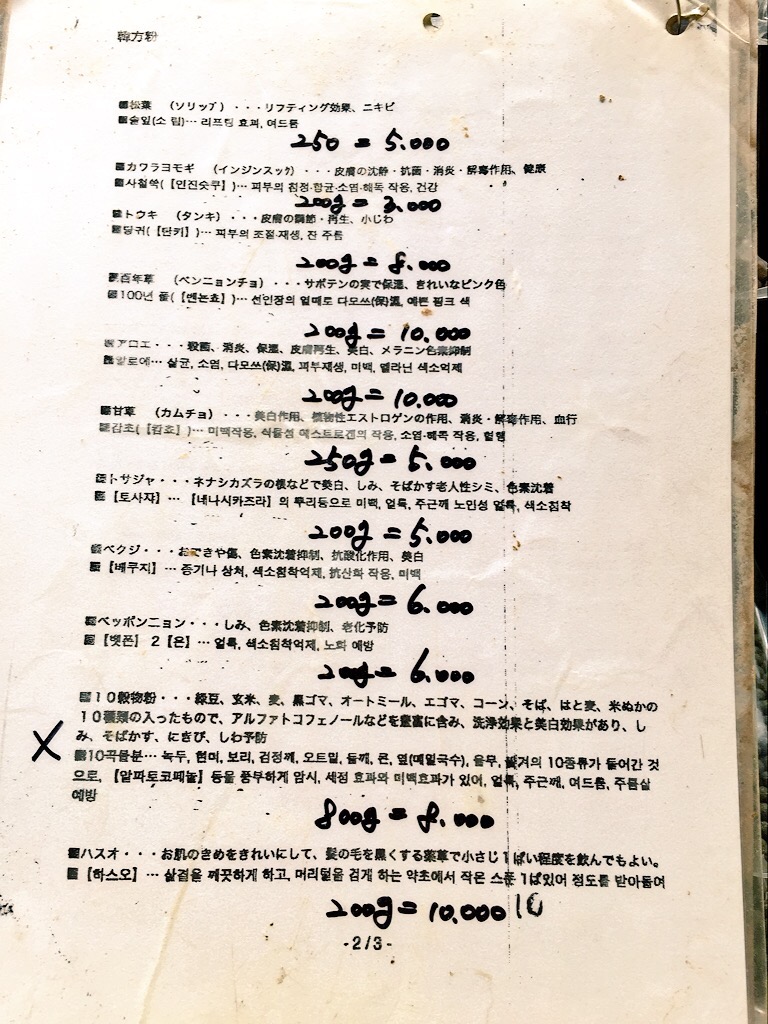 韓方粉
■松葉 (ソリップ)・・・リフティング効果、ニキビ
■솔잎(소 립)… 리프팅 효과, 여드름
250 = 5.000
■カワラヨモギ (インジンスック)・・・皮膚の沈静・抗菌・消炎・解毒作用、健康
■사철쑥(【인진숫쿠】)… 피부의 침정·항균·소염·해독 작용, 건강
200g = 3.000
■トウキ (タンキ)・・・皮膚の調節・再生、小じわ
■당귀(【탄키】)… 피부의 조절·재생, 잔 주름
200g = 8.000
■百年草 (ペンニョンチョ)・・・サボテンの実で保湿、きれいなピンク色
■100년 풀(【벤뇬쵸】)… 선인장의 열매로 다모쓰(保)濕, 예쁜 핑크 색
200g = 10.000
■アロエ・・・殺菌、消炎、保湿、皮膚再生、美白、メラニン色素抑制
■알로에… 살균, 소염, 다모쓰(保)濕, 피부재생, 미백, 멜라닌 색소억제
200g = 10.000
■甘草 (カムチョ)・・・美白作用、植物性エストロゲンの作用、消炎・解毒作用、血行
■감초(【캄쵸】)… 미백작용, 식물성 에스트로겐의 작용, 소염·해독 작용, 혈행
250g = 5.000
■トサジャ・・・ネナシカズラの種などで美白、しみ、そばかす老人性シミ、色素沈着
■【토사쟈】… 【네나시카즈라】의 뿌리등으로 미백, 얼룩, 주근깨 노인성 얼룩, 색소침착
200g = 5.000
■ペクジ・・・おできや傷、色素沈着抑制、抗酸化作用、美白
■【베쿠지】… 종기나 상처, 색소침착억제, 抗산화 작용, 미백
200g = 6.000
■ペッポンニョン・・・しみ、色素沈着抑制、老化予防
■【벳폰】2【온】… 얼룩, 색소침착억제, 노화 예방
200g = 6.000
■10穀物粉・・・緑豆、玄米、麦、黒ゴマ、オートミール、エゴマ、コーン、そば、はと麦、米ぬかの
10種類の入ったもので、アルファトコフェノールなどを豊富に含み、洗浄効果と美白効果があり、し
み、そばかす、にきび、しわ予防
X
■10곡물분… 녹두, 현미, 보리, 검정깨, 오트밀, 들깨, 콘, 옆(메밀국수), 율무, 쌀겨의 10종류가 들어간 것
으로, 【알파토코페놀】등을 풍부하게 암시, 세정 효과와 미백효과가 있어, 얼룩, 주근깨, 여드름, 주름살
예방
800g = 8.000
■ハスオ・・・お肌のきめをきれいにして、髪の毛を黒くする薬草で小さじ1ぱい程度を飲んでもよい。
■【하스오】… 살결을 깨끗하게 하고, 머리털을 검게 하는 약초에서 작은 스푼 1ぱ있어 정도를 받아둠여
200g = 10.000 10
-2/3-